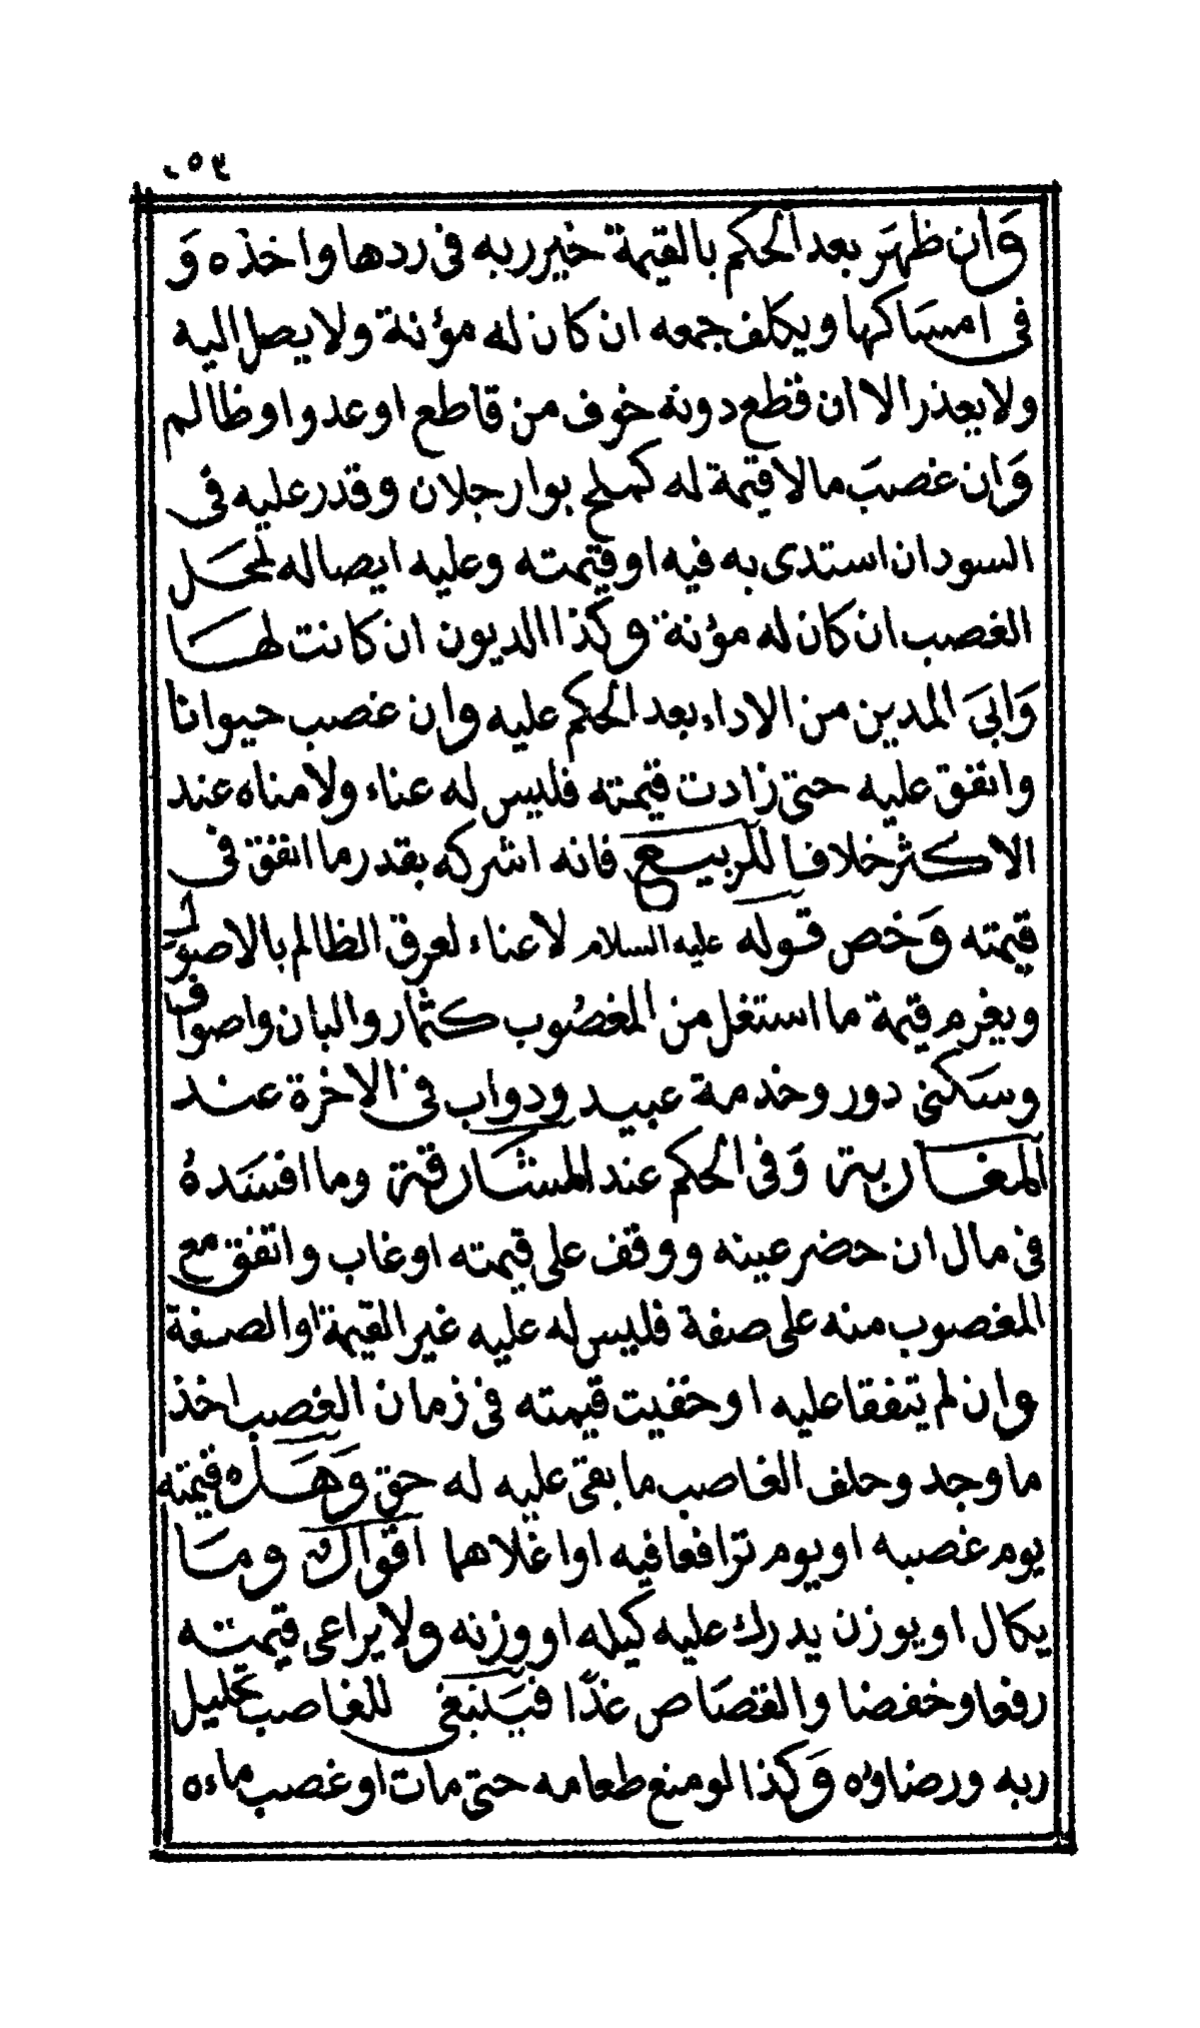 وان ظهر بعد الحكم بالقيمة خير ربه في ردها واخذه و
في امساكها ويكلف جمعه ان كان له مؤنة ولا يصل اليه
ولا يعذر الا ان قطع دونه خوف من قاطع او عدو او ظالم
وان غصب ما لا قيمة له كملح بوارجلان وقدر عليه في
السودان استدى به فيه او قيمته وعليه ايصاله لمحل
الغصب ان كان له مؤنة وكذا الديون ان كانت لها
وابى المدين من الاداء بعد الحكم عليه وان غصب حيوانا
وانفق عليه حتى زادت قيمته فليس له عناء ولا مناه عند
الاكثر خلافا للربيع فانه اشركه بقدر ما انفق في
قيمته وخص قوله عليه السلام لا عناء لعرق الظالم بالاصول
ويغرم قيمة ما استغل من المغصوب كثمار والبان واصواف
وسكنى دور وخدمة عبيد ودواب في الاخرة عند
المغاربة وفي الحكم عند المشارقة وما افسده
في مال ان حضر عينه ووقف على قيمته او غاب واتفق مع
المغصوب منه على صفة فليس له عليه غير القيمة او الصفة
وان لم يتفقا عليه او خفيت قيمته في زمان الغصب اخذ
ما وجد وحلف الغاصب ما بقي عليه له حق وهل له قيمته
يوم غصبه او يوم ترافعا فيه او اغلاهما اقوال وما
يكال او يوزن يدرك عليه كيله او وزنه ولا يراعى قيمته
رفعا وخفضا والقصاص غدًا فينبغي للغاصب تحليل
ربه ورضاؤه وكذا لو منع طعامه حتى مات او غصب ماءه